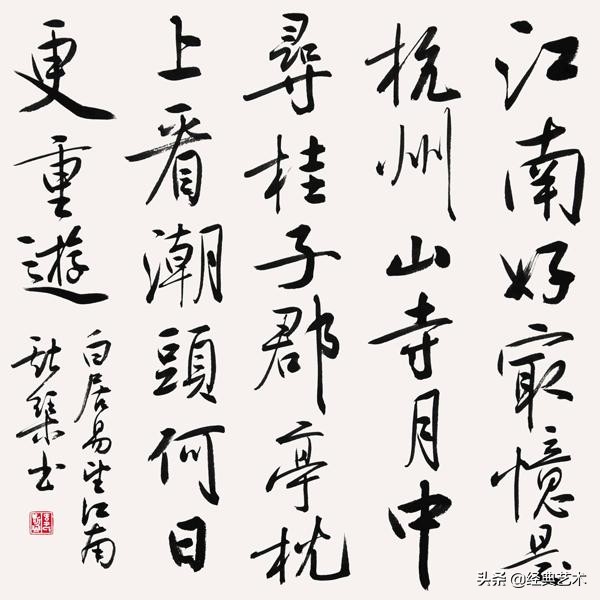 江南好最憶是
杭州山寺月中
尋桂子郡亭枕
上看潮頭何日
更重遊
白居易望江南
集书
头条 @经典艺术